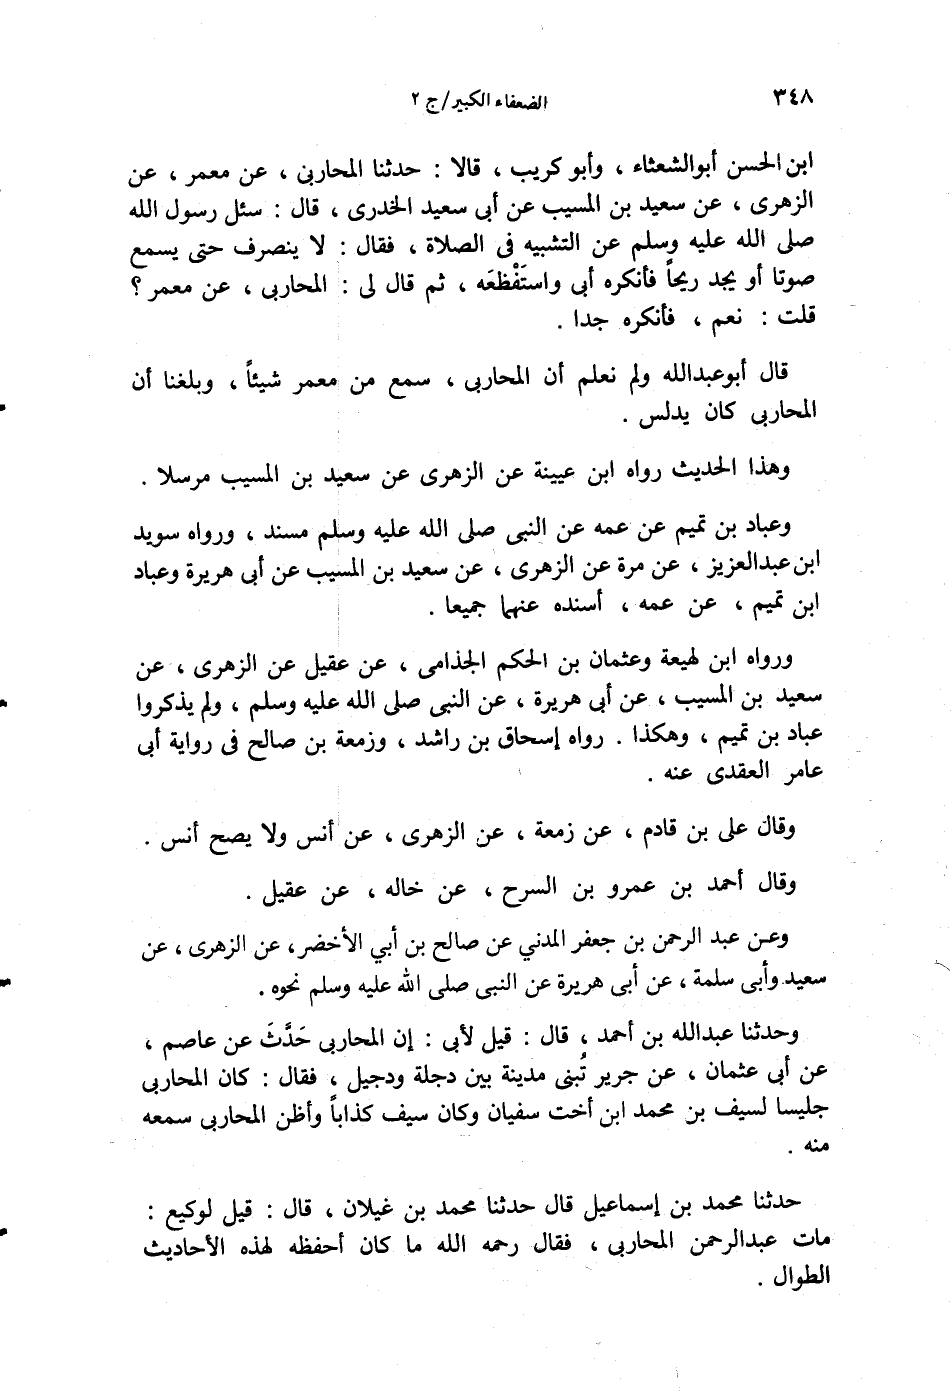 ٣٤٨
الضعفاء الكبير/ج ٢
ابن الحسن أبوالشعثاء ، وأبو كريب ، قالا : حدثنا المحاربى ، عن معمر ، عن
الزهرى ، عن سعيد بن المسيب عن أبى سعيد الخدرى ، قال : سئل رسول الله
صلى الله عليه وسلم عن التشبيه فى الصلاة ، فقال : لا ينصرف حتى يسمع
صوتا أو يجد ريحاً فأنكره أبى واستَفْظعَه ، ثم قال لى : المحاربى ، عن معمر ؟
قلت : نعم ، فأنكره جدا .
قال أبوعبدالله ولم نعلم أن المحاربى ، سمع من معمر شيئاً ، وبلغنا أن
المحاربى كان يدلس .
وهذا الحديث رواه ابن عيينة عن الزهرى عن سعيد بن المسيب مرسلا .
وعباد بن تميم عن عمه عن النبى صلى الله عليه وسلم مسند ، ورواه سويد
ابن عبدالعزيز ، عن مرة عن الزهرى ، عن سعيد بن المسيب عن أبى هريرة وعباد
ابن تميم ، عن عمه ، أسنده عنهما جميعا .
ورواه ابن لهيعة وعثمان بن الحكم الجذامى ، عن عقيل عن الزهرى ، عن
سعيد بن المسيب ، عن أبى هريرة ، عن النبى صلى الله عليه وسلم ، ولم يذكروا
عباد بن تميم ، وهكذا . رواه إسحاق بن راشد ، وزمعة بن صالح فى رواية أبى
عامر العقدى عنه .
وقال على بن قادم ، عن زمعة ، عن الزهرى ، عن أنس ولا يصح أنس .
وقال أحمد بن عمرو بن السرح ، عن خاله ، عن عقيل .
وعن عبد الرحمن بن جعفر المدني عن صالح بن أبي الأخضر، عن الزهرى ، عن
سعيد وأبى سلمة ، عن أبى هريرة عن النبى صلى الله عليه وسلم نحوه .
وحدثنا عبدالله بن أحمد ، قال : قيل لأبى : إن المحاربى حَدَّثَ عن عاصم ،
عن أبى عثمان ، عن جرير تُبنى مدينة بين دجلة ودجيل ، فقال : كان المحاربى
جليسا لسيف بن محمد ابن أخت سفيان وكان سيف كذاباً وأظن المحاربى سمعه
منه .
حدثنا محمد بن إسماعيل قال حدثنا محمد بن غيلان ، قال : قيل لوكيع :
مات عبدالرحمن المحاربى ، فقال رحمه الله ما كان أحفظه لهذه الأحاديث
الطوال .